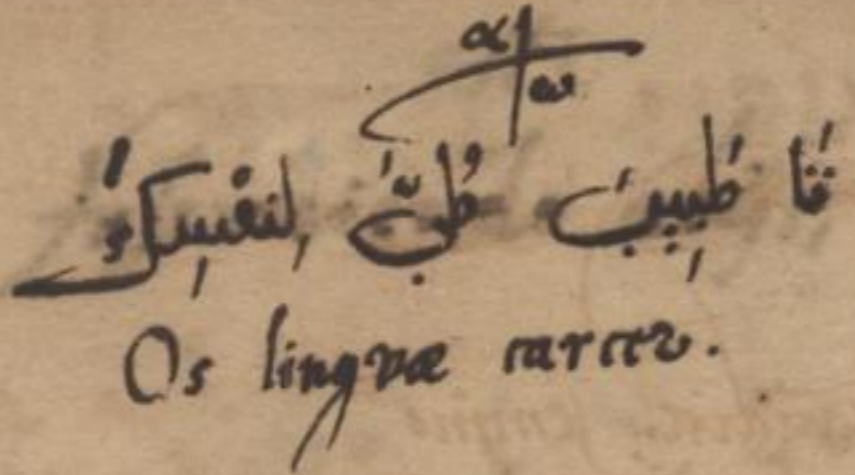 α
ω
طَبِيبَ طُبَّ لِنَفْسِكَ
Os linguæ carcer.